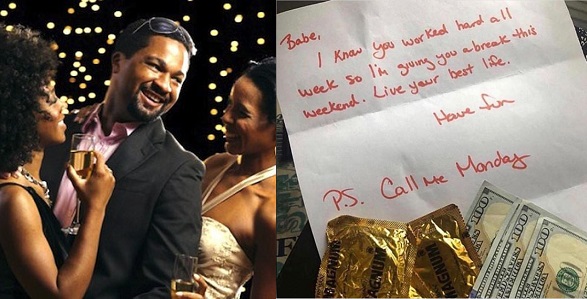 Babe,
I know you worked hard all
week so I'm giving you a break this
weekend. Live your best life.
Have fun
P.S. Call Me Monday
MAGNUM
MAGNUM
100
100
100